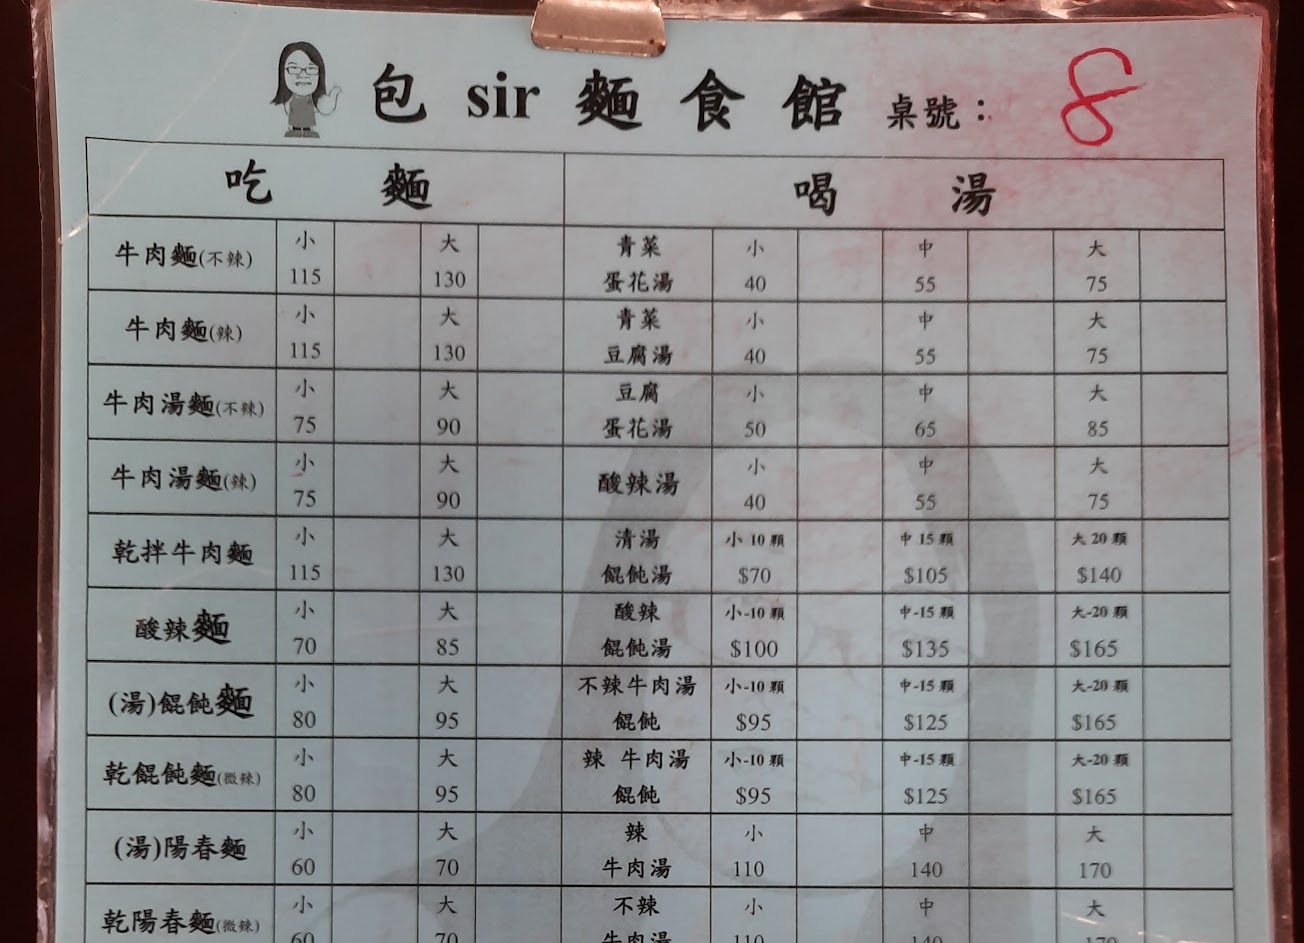 包 sir 麵 食 館 桌號： 8
吃 麵 喝 湯
牛肉麵(不辣) 小 115 大 130 青菜蛋花湯 小 40 中 55 大 75
牛肉麵(辣) 小 115 大 130 青菜豆腐湯 小 40 中 55 大 75
牛肉湯麵(不辣) 小 75 大 90 豆腐蛋花湯 小 50 中 65 大 85
牛肉湯麵(辣) 小 75 大 90 酸辣湯 小 40 中 55 大 75
乾拌牛肉麵 小 115 大 130 清湯餛飩湯 小 10 顆 $70 中 15 顆 $105 大 20 顆 $140
酸辣麵 小 70 大 85 酸辣餛飩湯 小-10 顆 $100 中-15 顆 $135 大-20 顆 $165
(湯)餛飩麵 小 80 大 95 不辣牛肉湯餛飩 小-10 顆 $95 中-15 顆 $125 大-20 顆 $165
乾餛飩麵(微辣) 小 80 大 95 辣 牛肉湯餛飩 小-10 顆 $95 中-15 顆 $125 大-20 顆 $165
(湯)陽春麵 小 60 大 70 辣牛肉湯 小 110 中 140 大 170
乾陽春麵(微辣) 小 60 大 70 不辣牛肉湯 小 110 中 140 大 170